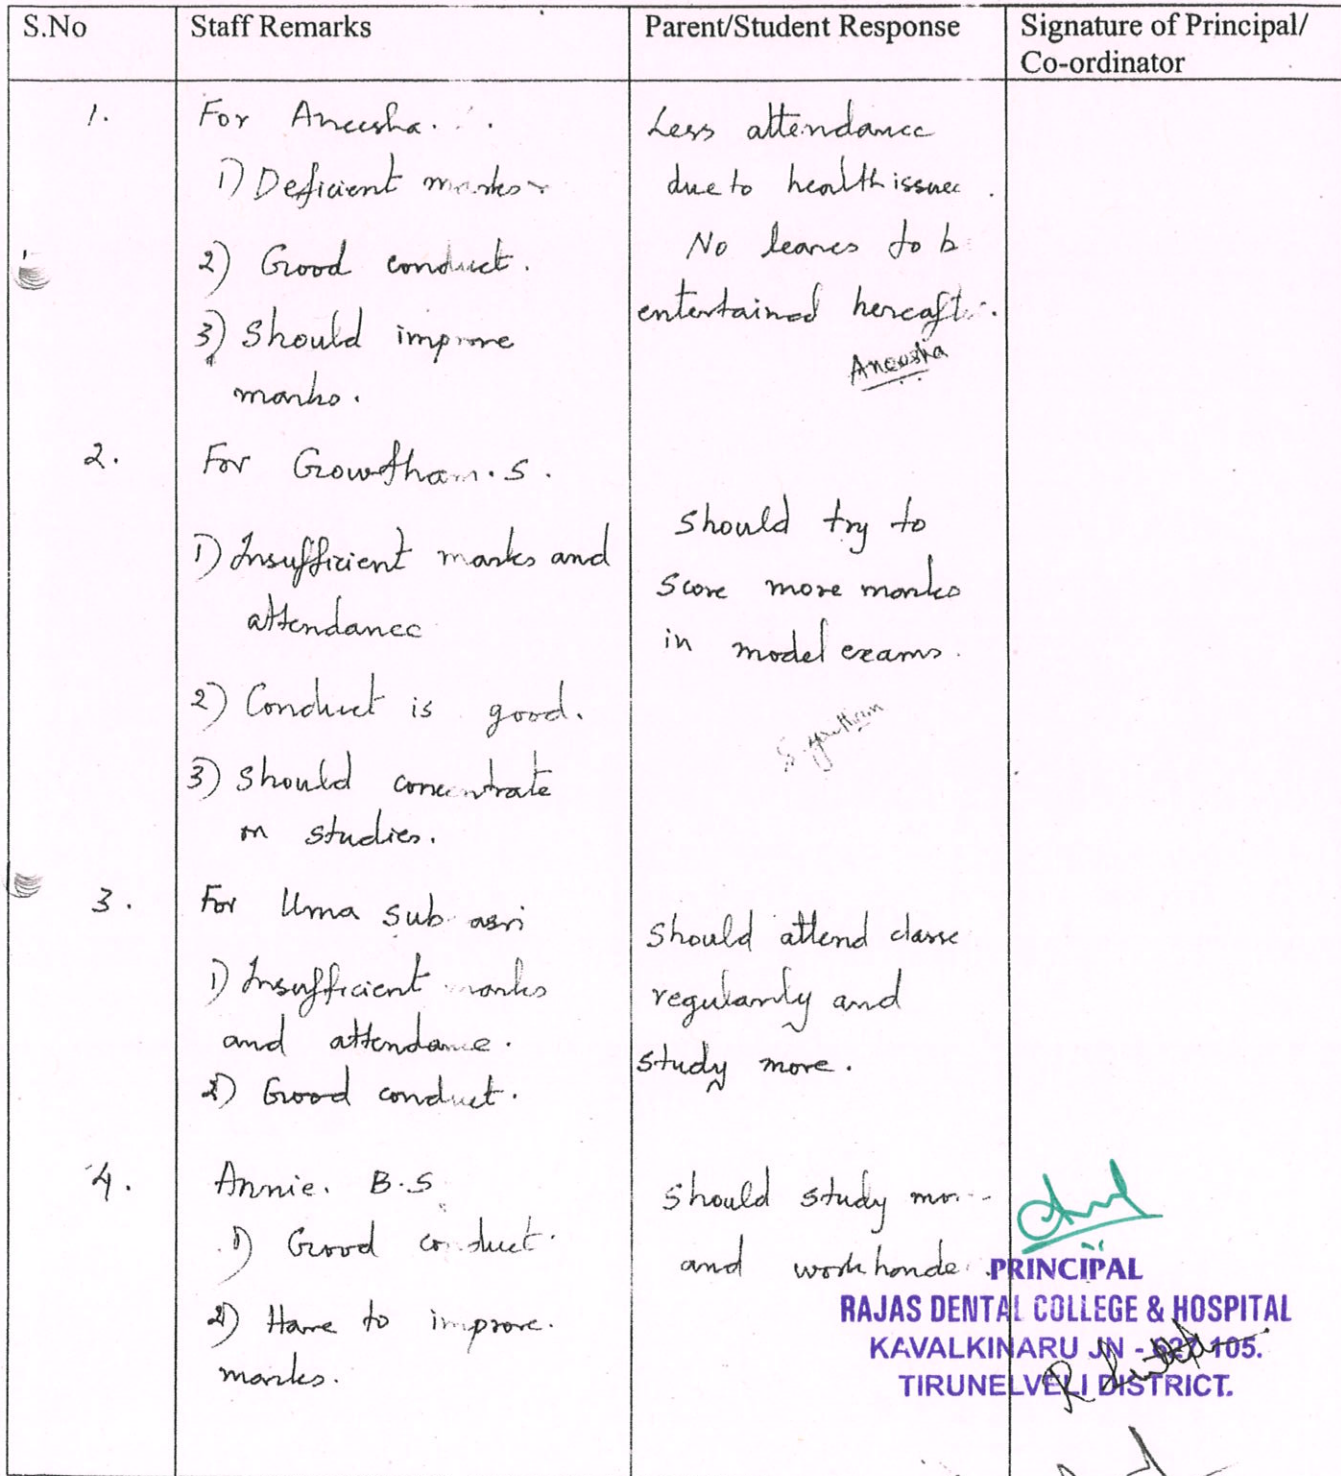 S.No Staff Remarks Parent/Student Response Signature of Principal/
Co-ordinator
1. For Aneesha...
1) Deficient marks
2) Good conduct.
3) Should improve
marks.
Less attendance
due to health issues.
No leaves to b
entertained hereaft.
Aneesha
2. For Gowtham.S.
1) Insufficient marks and
attendance
2) Conduct is good.
3) Should concentrate
on studies.
Should try to
score more marks
in model exams.
S. Gowtham
3. For Uma Sub asri
1) Insufficient marks
and attendance.
2) Good conduct.
Should attend classe
regularly and
study more.
4. Annie. B.S
1) Good conduct.
2) Have to improve.
marks.
Should study mor
and work harde
PRINCIPAL
RAJAS DENTAL COLLEGE & HOSPITAL
KAVALKINARU JN - 627 105.
TIRUNELVELI DISTRICT.